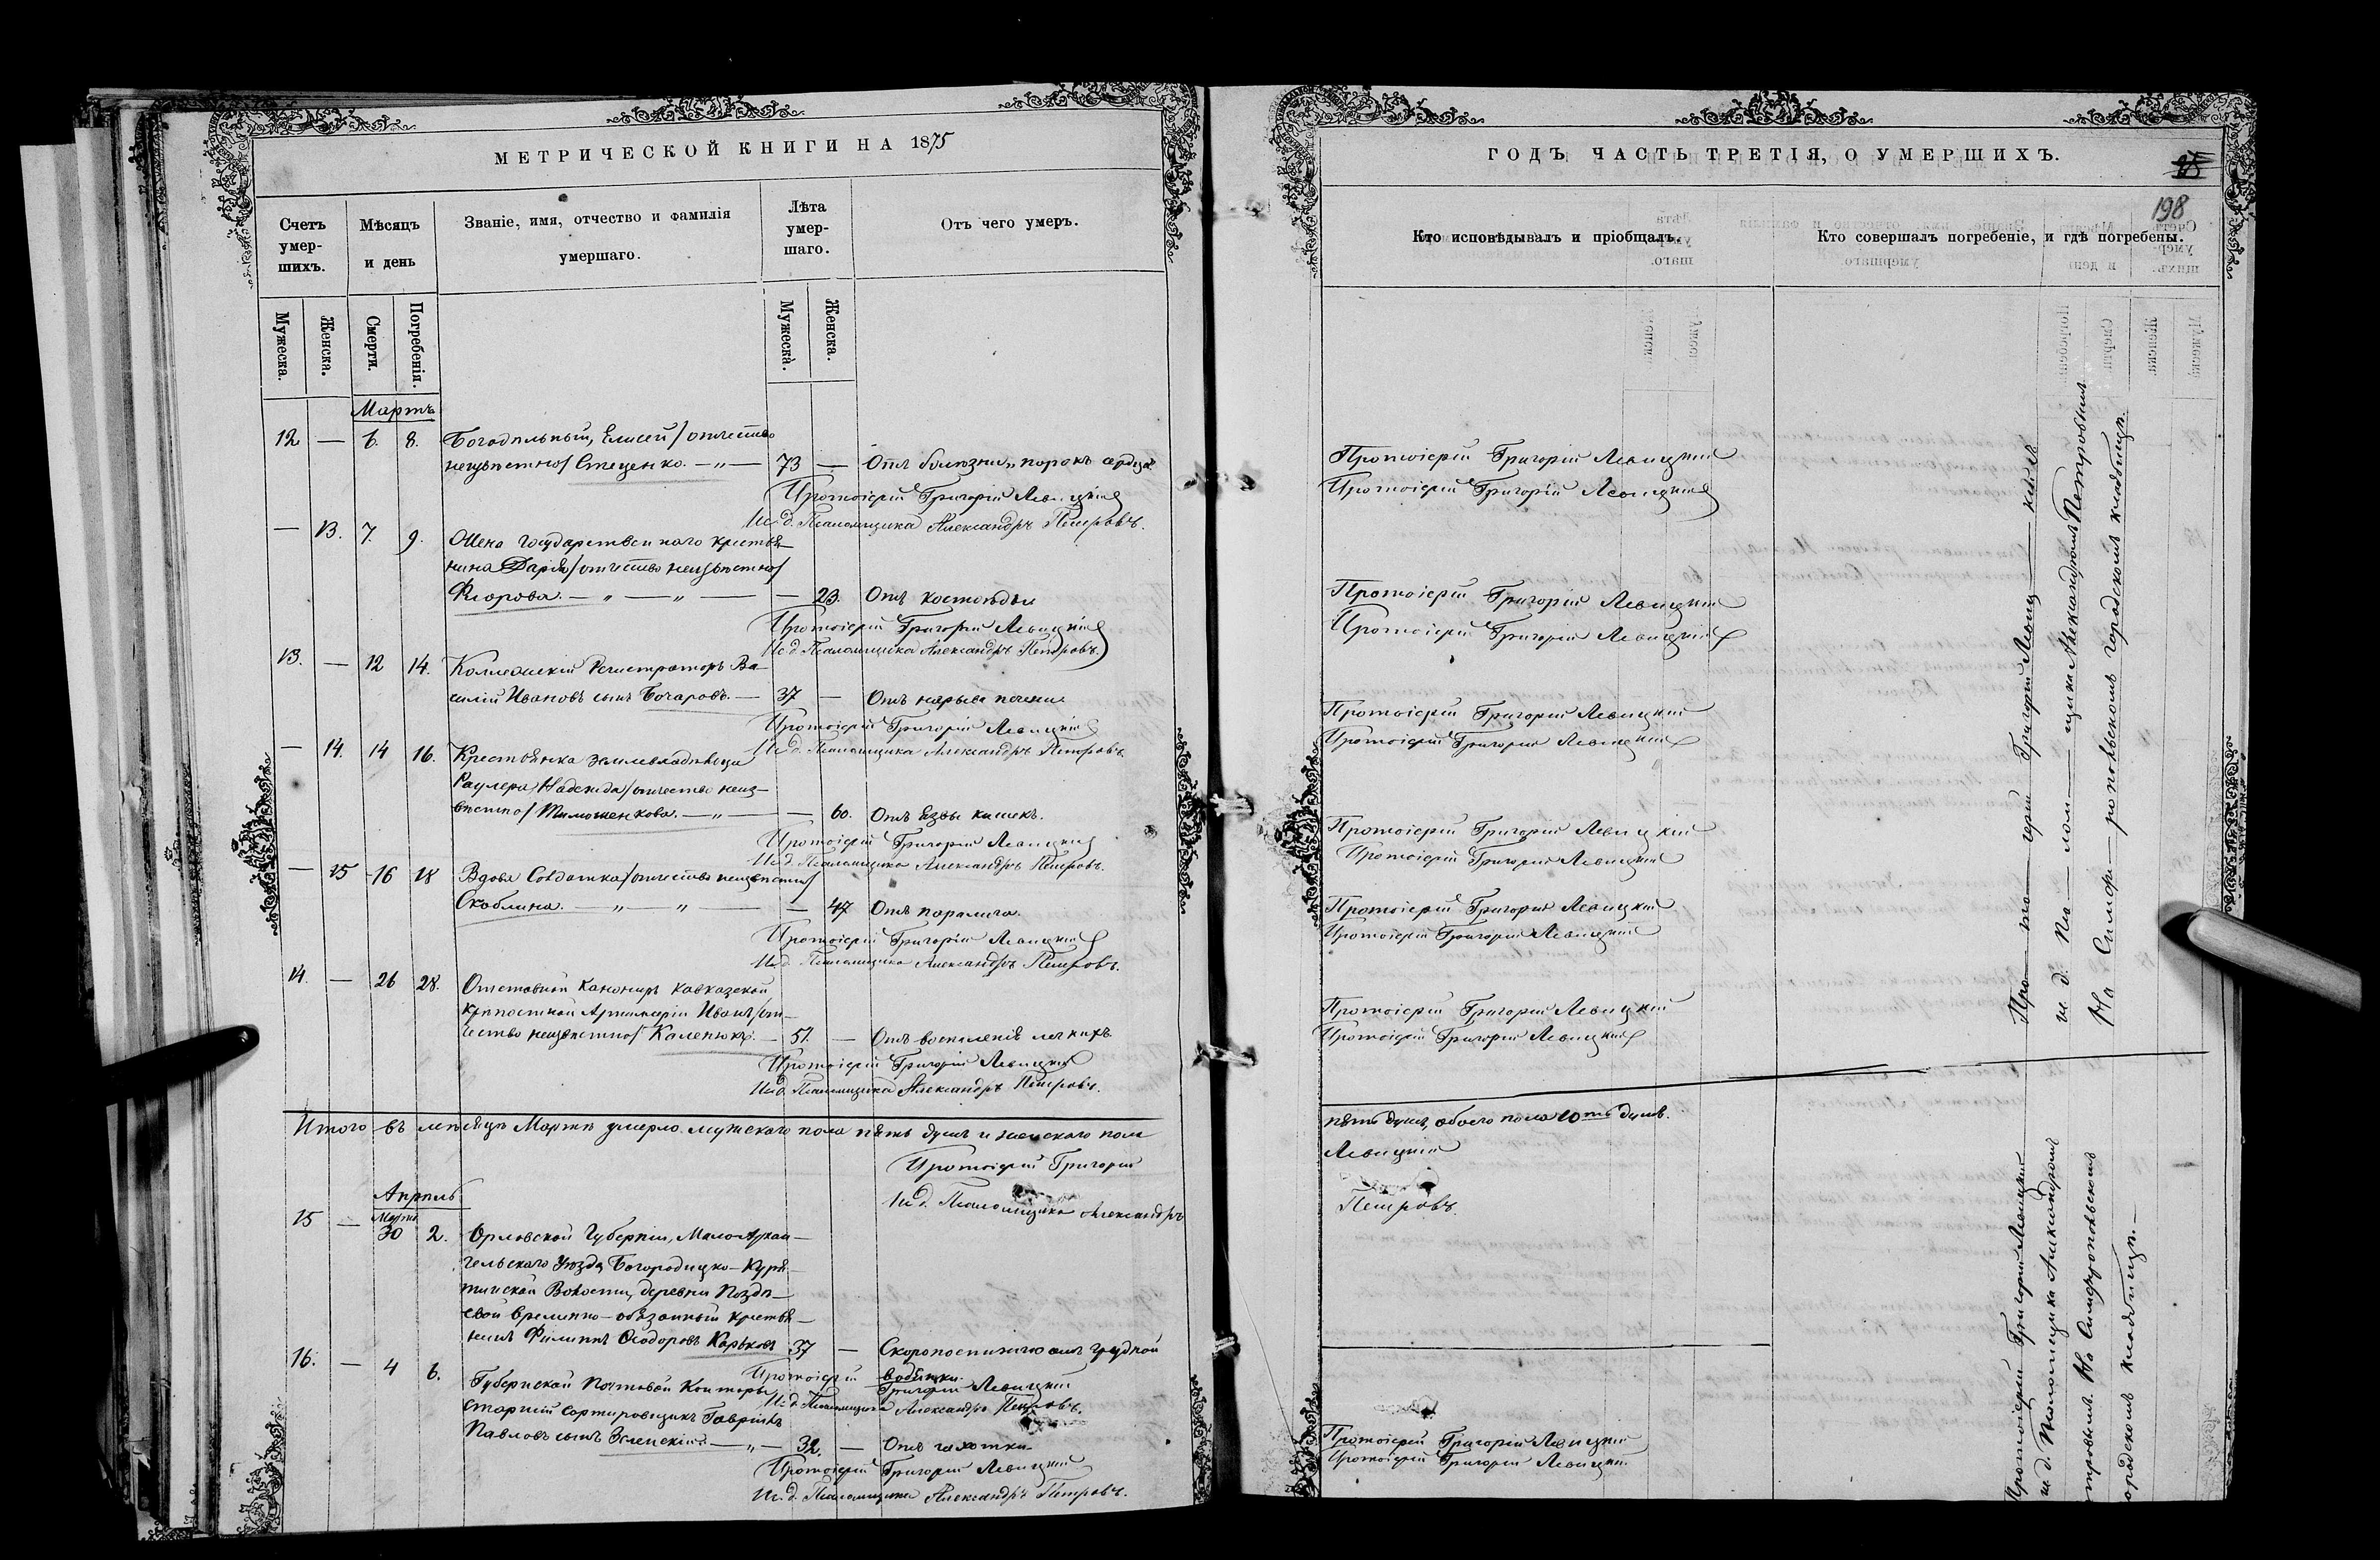 МЕТРИЧЕСКОЙ КНИГИ НА 1875
Счетъ умер-шихъ.
Мѣсяцъ и день
Званіе, имя, отчество и фамилія умершаго.
Лѣта умер-шаго.
Отъ чего умеръ.
Мужеска.
Женска.
Смерти.
Погребенія.
Мужеска.
Женска.
Мартъ
12 — 6. 8. Богадѣльный, Елисей /отчество
неизвѣстно/ Стеценко. —„— 73 — Отъ болѣзни „порокъ сердца
Протоіерей Григорій Левицкій
И. д. Псаломщика Александръ Петровъ.
— 13. 7. 9. Жена государственнаго крестья-
нина Дарія /отчество неизвѣстно/
Фіорова. —„—„— — 23. Отъ костоѣды
Протоіерей Григорій Левицкій
И. д. Псаломщика Александръ Петровъ.
13. — 12 14. Коллежскій Регистраторъ Ва-
силій Ивановъ сынъ Бочаровъ. — 37 — Отъ нарыва печени
Протоіерей Григорій Левицкій
И. д. Псаломщика Александръ Петровъ.
— 14. 14 16. Крестьянка землевладѣльца
Надежда /отчество неиз-
вѣстно/ Тимошенкова. —„— — 60. Отъ язвы кишекъ.
Протоіерей Григорій Левицкій
И. д. Псаломщика Александръ Петровъ.
— 15 16 18 Вдова Солдатка /отчество неизвѣстно/
Скоблина. —„—„— — 47 Отъ паралича.
Протоіерей Григорій Левицкій
И. д. Псаломщика Александръ Петровъ.
14. — 26 28. Отставной Канониръ Кавказской
крѣпостной Артиллеріи Иванъ /от-
чество неизвѣстно/ Каленюкъ. — 51. — Отъ воспаленія легкихъ
Протоіерей Григорій Левицкій
И. д. Псаломщика Александръ Петровъ.
Итого въ мѣсяцѣ Мартѣ умерло мужскаго пола пять душъ и женскаго пола
Протоіерей Григорій
И. д. Псаломщика Александръ
Апрѣль
Марта
15 — 30 2. Орловской Губерніи, Мало-Архан-
гельскаго Уѣзда, Богородицко-
Волости, деревни
временно-обязанный крестья-
нинъ Филиппъ Ѳеодоровъ Карьковъ 37 — Скоропостижно отъ грудной
водянки.
Протоіерей Григорій Левицкій
И. д. Псаломщика Александръ Петровъ.
16. — 4 6. Губернской Почтовой Конторы
старшій сортировщикъ Гавріилъ
Павловъ сынъ Зеленскій. —„— 32. — Отъ чахотки.
Протоіерей Григорій Левицкій
И. д. Псаломщика Александръ Петровъ.
ГОДЪ ЧАСТЬ ТРЕТІЯ, О УМЕРШИХЪ.
198
Кто исповѣдывалъ и пріобщалъ.
Кто совершалъ погребеніе, и гдѣ погребены.
Протоіерей Григорій Левицкій
Протоіерей Григорій Левицкій
Протоіерей Григорій Левицкій
Протоіерей Григорій Левицкій
Протоіерей Григорій Левицкій
Протоіерей Григорій Левицкій
Протоіерей Григорій Левицкій
Протоіерей Григорій Левицкій
Протоіерей Григорій Левицкій
Протоіерей Григорій Левицкій
Протоіерей Григорій Левицкій
Протоіерей Григорій Левицкій
Про — то — іерей Григорій Левиц — кій съ
и. д. Пса — лом — щика Александромъ Петровымъ
На Симфе — ропольскомъ городскомъ кладбищѣ.
пять душъ, обоего пола 10ть душъ.
Левицкій
Петровъ.
Протоіерей Григорій Левицкій
Протоіерей Григорій Левицкій
Протоіерей Григорій Левицкій
и. д. Псаломщика Александромъ
тровымъ. На Симферопольскомъ
ородскомъ кладбищѣ. —